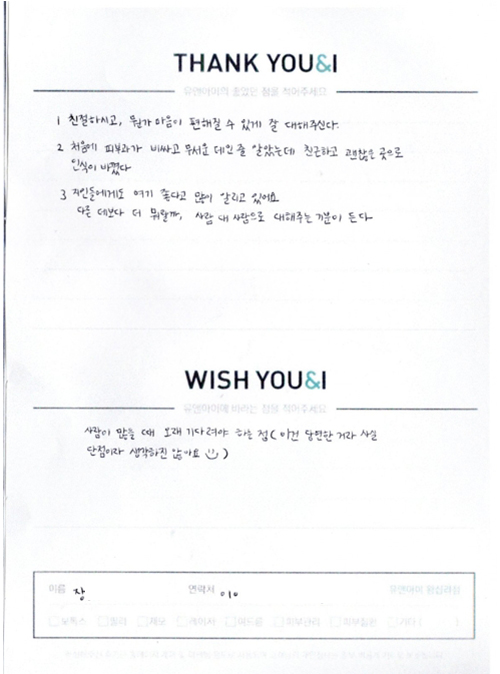 THANK YOU&I
유앤아이의 좋았던 점을 적어주세요
1 친절하시고, 뭔가 마음이 편해질 수 있게 잘 대해주신다.
2 처음에 피부과가 비싸고 무서운 데인 줄 알았는데 친근하고 괜찮은 곳으로
인식이 바꼈다
3 지인들에게도 여기 좋다고 많이 알리고 있어요
다른 데보다 더 뭐랄까, 사람 대 사람으로 대해주는 기분이 든다
WISH YOU&I
유앤아이에 바라는 점을 적어주세요
사람이 많을 때 오래 기다려야 하는 점 (이건 당연한 거라 사실
단점이라 생각하진 않아요 )
이름 장 연락처 010 유앤아이 왕십리점
보톡스 필러 제모 레이저 여드름 피부관리 피부질환 기타 ( )